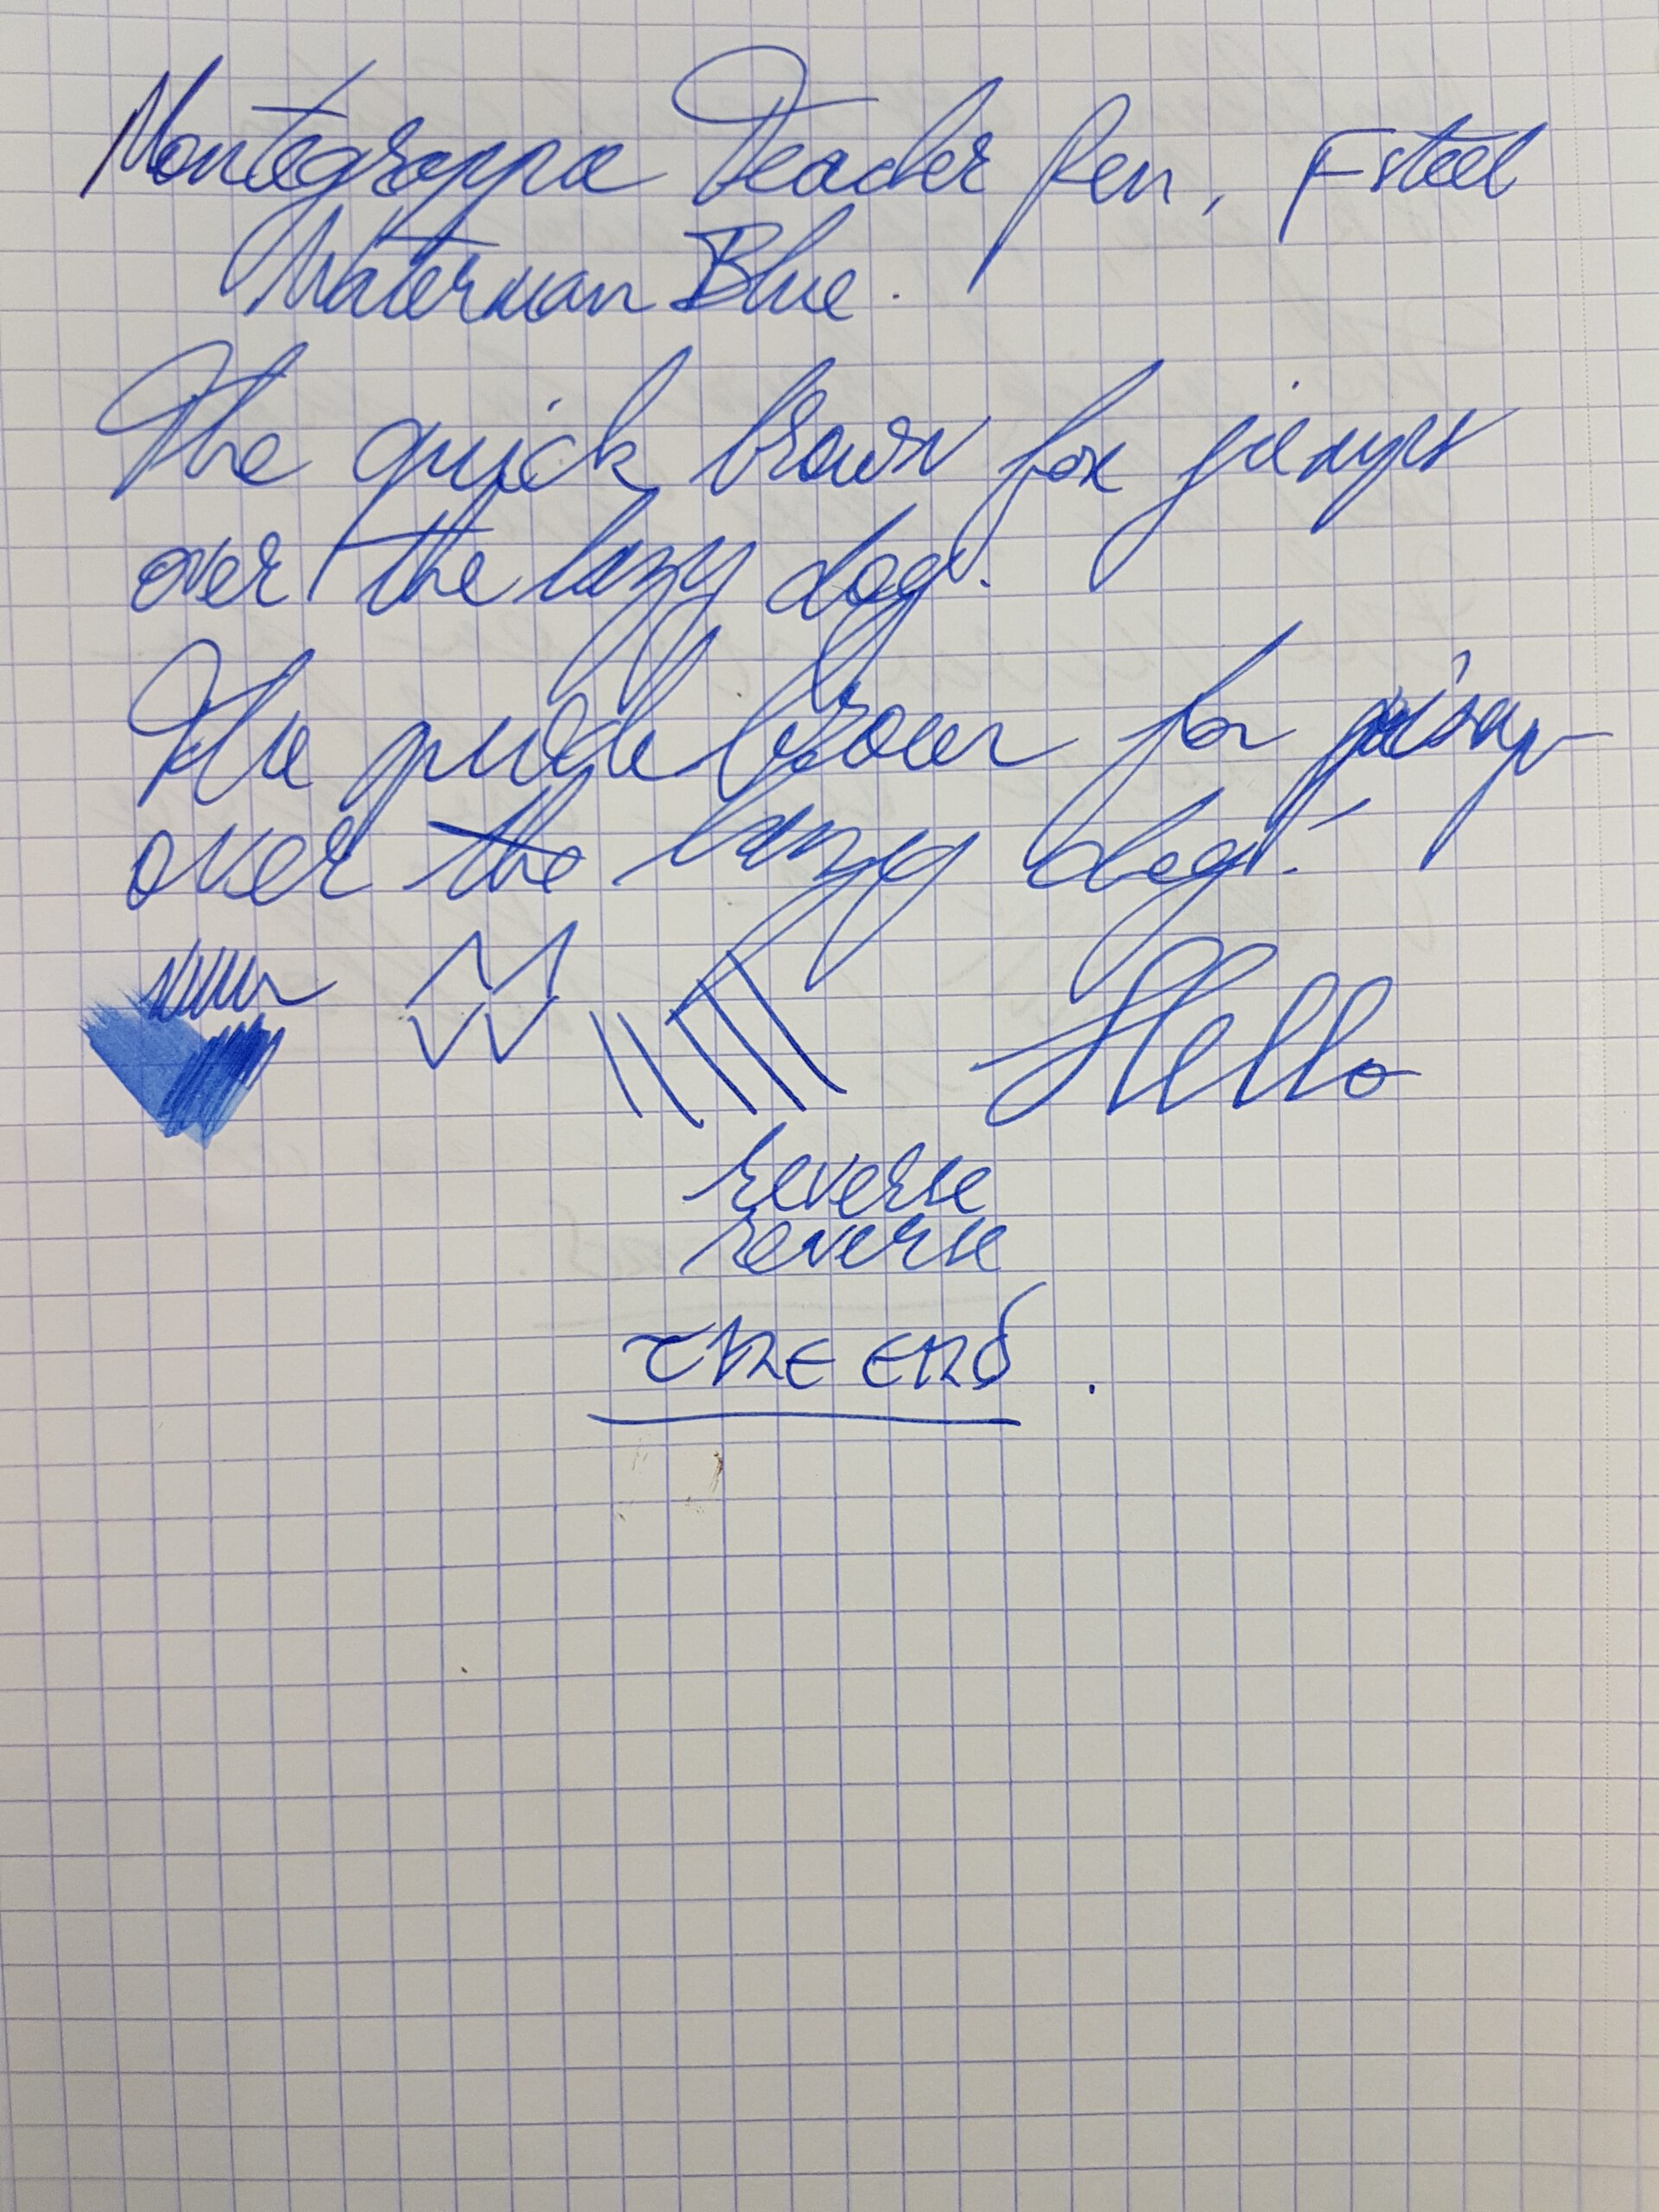 Montegrappa Teacher Pen, F steel
Waterman Blue.
The quick brown fox jumps
over the lazy dog.
The quick brown fox jumps
over the lazy dog!
Hello
reverse
reverse
THE END.